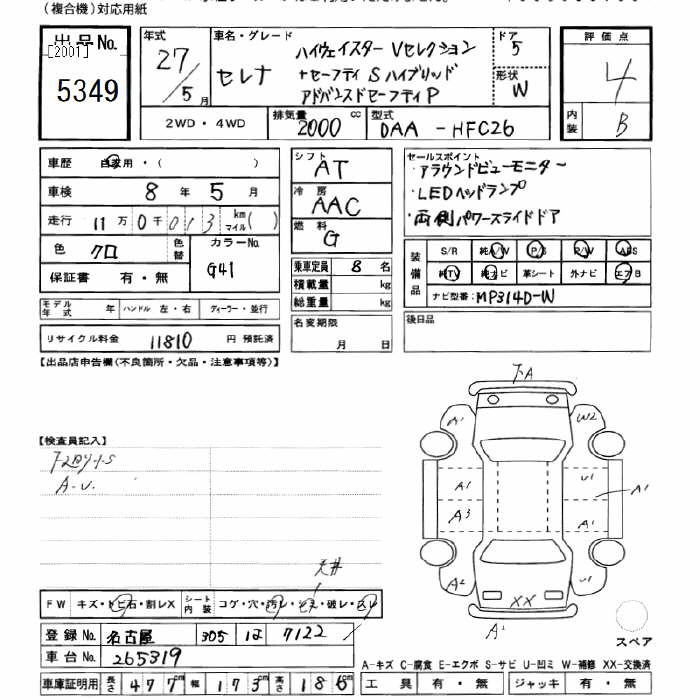 (複合機)対応用紙
出品No.
[2001]
5349
年式
27/5月
車名・グレード
セレナ
ハイウェイスター Vセレクション
+セーフティ Sハイブリッド
アドバンスドセーフティP
ドア
5
形状
W
評価点
4
内装
B
2WD・4WD
排気量
2000 cc
型式
DAA-HFC26
車歴
自家用・( )
車検
8年5月
走行
11万0千013 km マイル( )
色
クロ
色替
カラーNo.
G41
保証書 有・無
モデル年式 年
ハンドル 左・右
ディーラー・並行
リサイクル料金 11810 円 預託済
シフト
AT
冷房
AAC
燃料
G
乗車定員 8 名
積載量 kg
総重量 kg
名変期限
月 日
セールスポイント
・アラウンドビューモニター
・LEDヘッドランプ
・両側パワースライドドア
装備品
S/R 純A/W P/S P/W ABS
純TV 純ナビ 革シート 外ナビ エアB
ナビ型番: MP314D-W
後日品
【出品店申告欄(不良箇所・欠品・注意事項等)】
【検査員記入】
A-U.
下A
A1
W2
A1
U1
A1
A3
A1
A2
U1
XX
A2
スペア
天井
FW キズ・トビ石・割レX
シート内装 コゲ・穴・汚レ・シミ・破レ・スレ
登録No. 名古屋 305 は 7122
車台No. 265319
車庫証明用 長さ 477cm 幅 173cm 高さ 186cm
A-キズ C-腐食 E-エクボ S-サビ U-凹ミ W-補修 XX-交換済
工具 有・無 ジャッキ 有・無